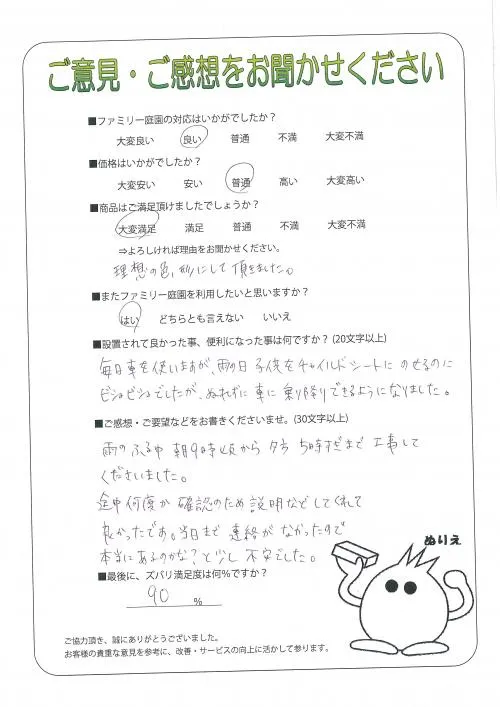 ご意見・ご感想をお聞かせください
■ファミリー庭園の対応はいかがでしたか？
大変良い 良い 普通 不満 大変不満
■価格はいかがでしたか？
大変安い 安い 普通 高い 大変高い
■商品はご満足頂けましたでしょうか？
大変満足 満足 普通 不満 大変不満
⇒よろしければ理由をお聞かせください。
理想の色、形にして頂きました。
■またファミリー庭園を利用したいと思いますか？
はい どちらとも言えない いいえ
■設置されて良かった事、便利になった事は何ですか？(20文字以上)
毎日車を使いますが、雨の日 子供をチャイルドシートに のせるのに
ビショビショでしたが、ぬれずに 車に 乗り降りできるようになりました。
■ご感想・ご要望などをお書きくださいませ。(30文字以上)
雨のふる中 朝9時頃から 夕方 5時すぎまで 工事して
くださいました。
途中何度か 確認のため 説明など してくれて
良かったです。当日まで 連絡が なかったので
本当にあるのかな？と少し 不安でした。
■最後に、ズバリ満足度は何％ですか？
90 ％
ぬりえ
ご協力頂き、誠にありがとうございました。
お客様の貴重な意見を参考に、改善・サービスの向上に活かして参ります。